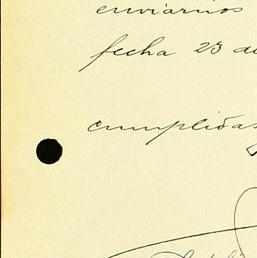 enviarnos
fecha 23 de
cumplidas